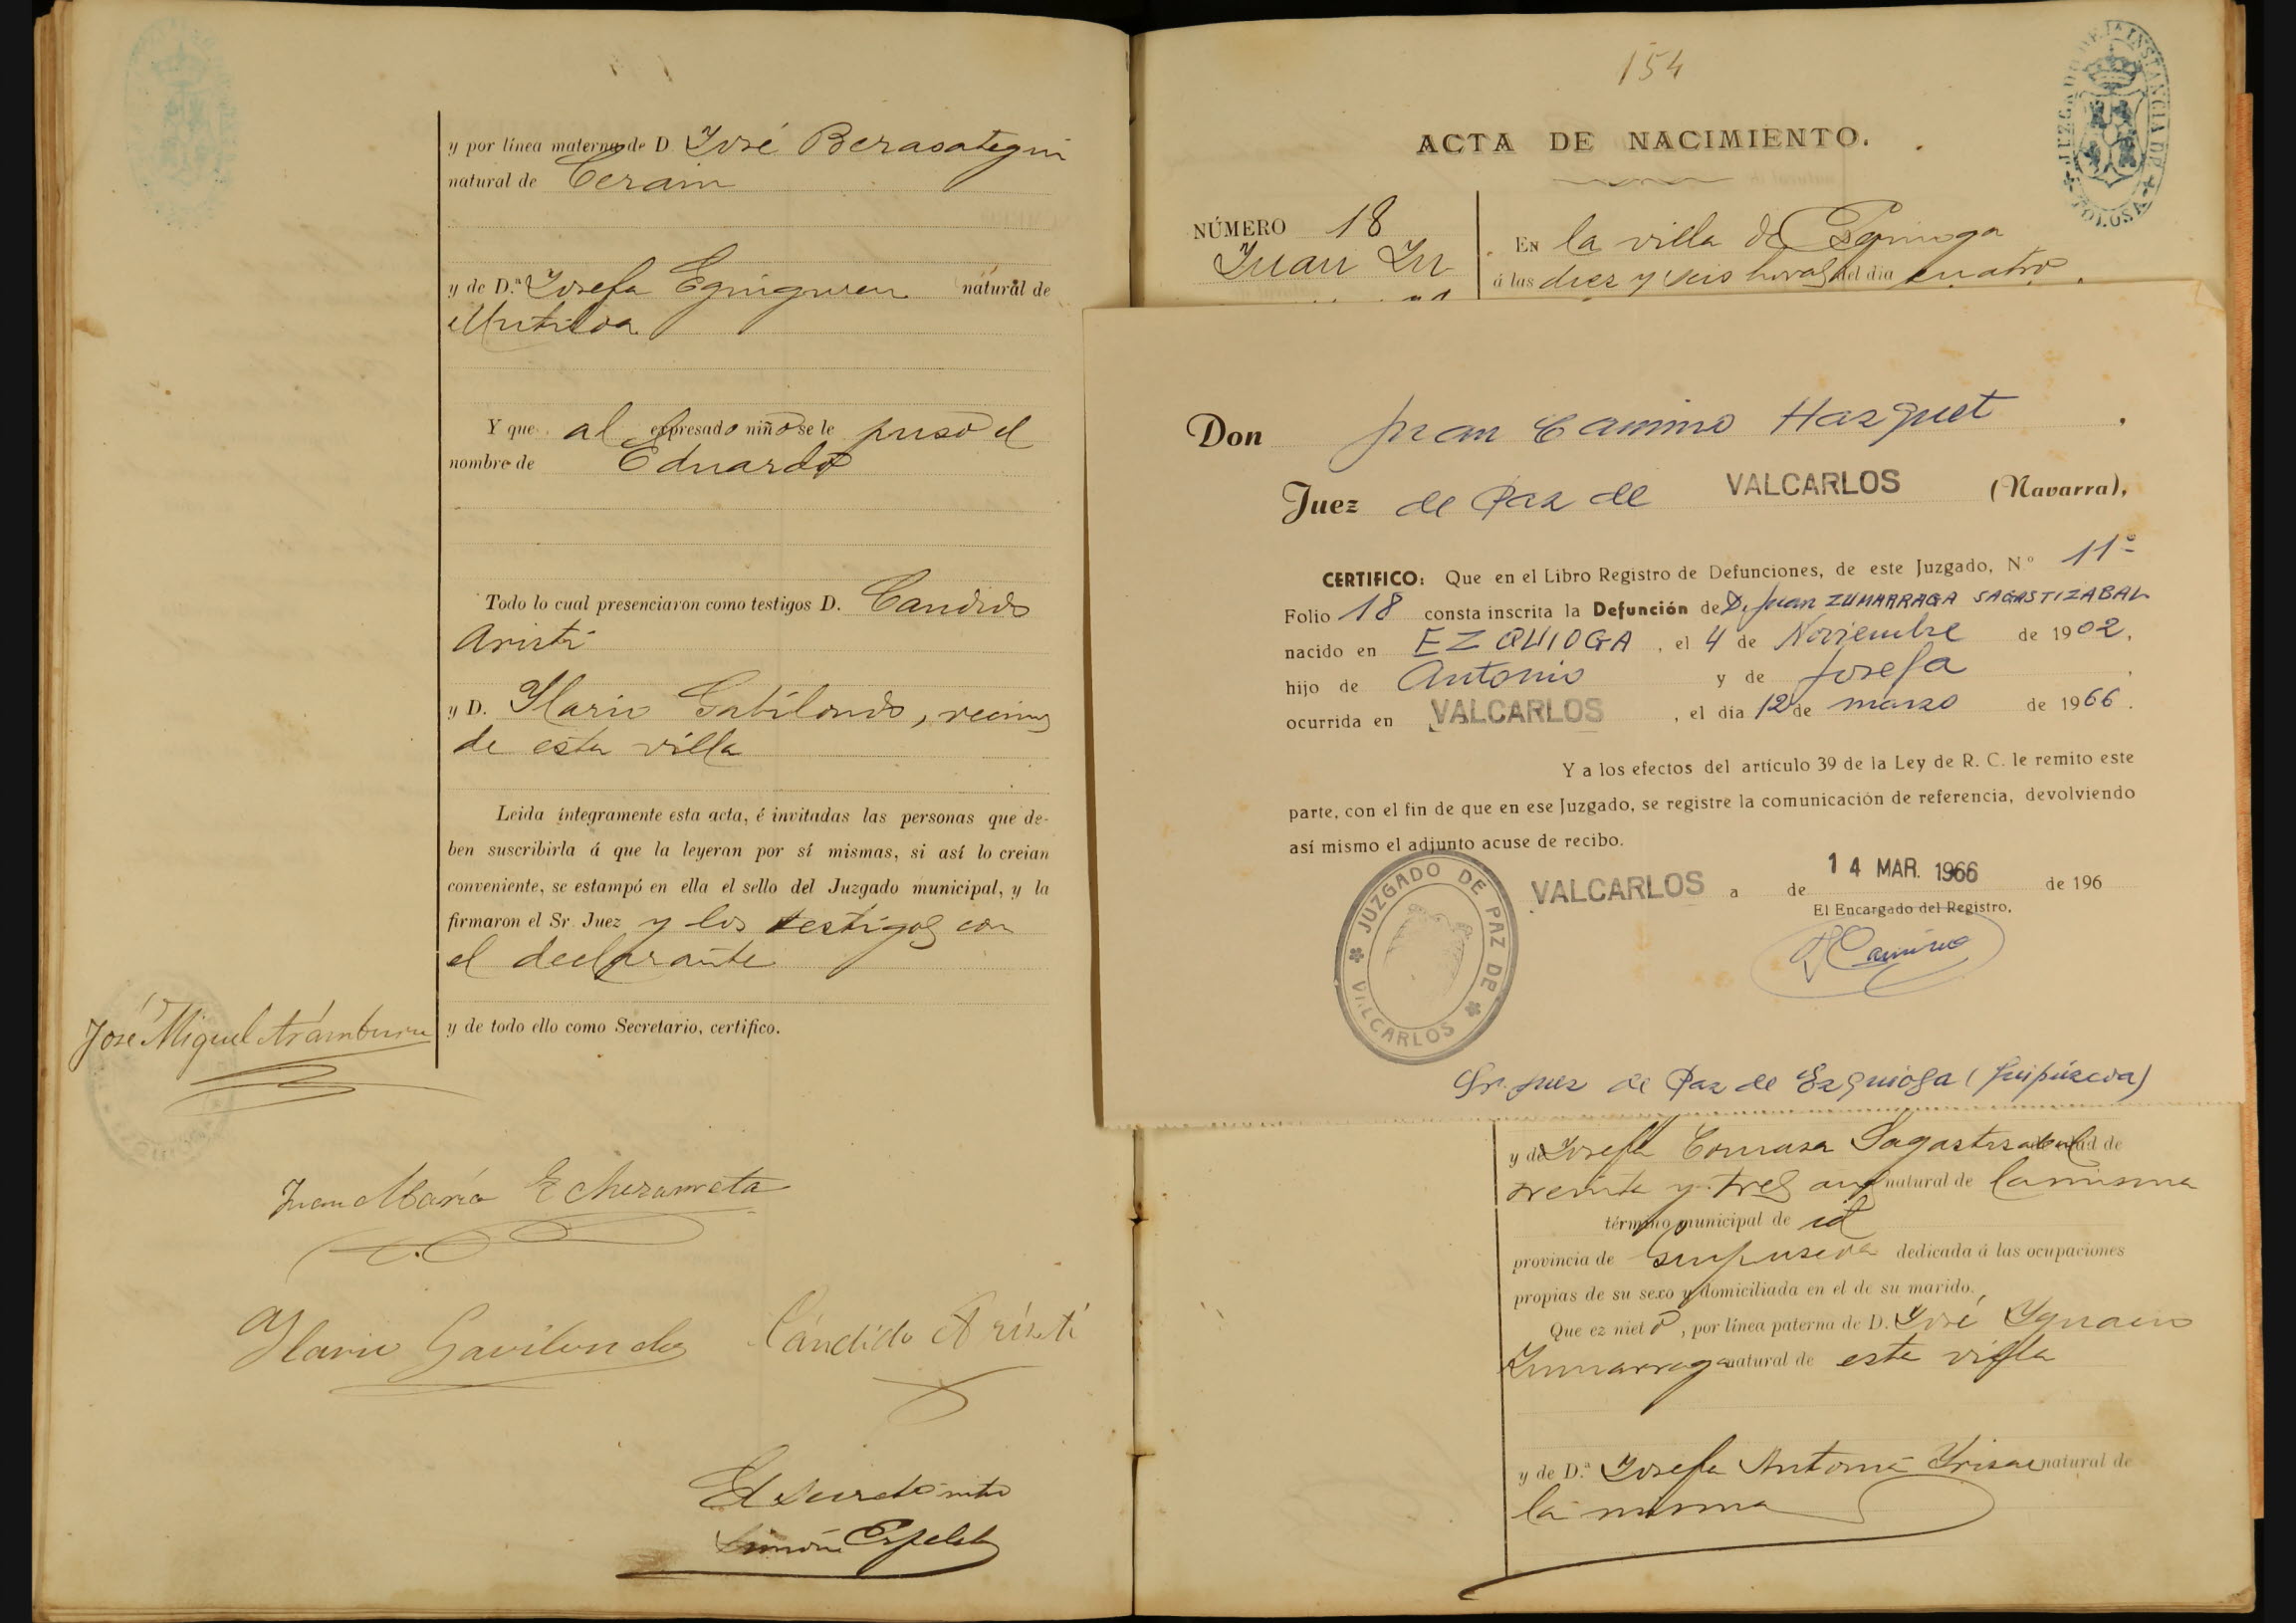 y por línea materna de D. José Berasategui
natural de Ceram
y de D.ª Josefa Eguiguren natural de
Mutiloa
Y que al expresado niño se le puso el
nombre de Eduardo
Todo lo cual presenciaron como testigos D. Candido
Aristi
y D. Ylario Gabilondo, vecinos
de esta villa
Leida íntegramente esta acta, é invitadas las personas que de-
ben suscribirla á que la leyeran por sí mismas, si así lo creian
conveniente, se estampó en ella el sello del Juzgado municipal, y la
firmaron el Sr. Juez y los testigos con
el declarante
y de todo ello como Secretario, certifico.
José Miguel Aramburu
Juan María Echezarreta
Ylario Gavilondo Cándido Aristi
El Secretario
Simón Espelet
154
ACTA DE NACIMIENTO.
JUZGADO DE 1ª INSTANCIA DE TOLOSA
NÚMERO 18
Juan
En la villa de Ezquioga
á las diez y seis horas del dia cuatro
Don Juan Camino Hazquet
Juez de Paz de VALCARLOS (Navarra),
CERTIFICO: Que en el Libro Registro de Defunciones, de este Juzgado, Nº 11º
Folio 18 consta inscrita la Defunción de D. Juan ZUMARRAGA SAGASTIZABAL
nacido en EZQUIOGA, el 4 de Noviembre de 1902,
hijo de Antonio y de Josefa
ocurrida en VALCARLOS, el día 12 de marzo de 1966.
Y a los efectos del artículo 39 de la Ley de R. C. le remito este
parte, con el fin de que en ese Juzgado, se registre la comunicación de referencia, devolviendo
así mismo el adjunto acuse de recibo.
VALCARLOS a de 14 MAR. 1966 de 196
El Encargado del Registro,
JCamino
JUZGADO DE PAZ DE VALCARLOS
Sr. Juez de Paz de Ezquioga (Guipúzcoa)
y de Josefa Tomasa Sagastizabal de edad de
treinta y tres años natural de la misma
término municipal de id
provincia de Guipuzcoa dedicada á las ocupaciones
propias de su sexo y domiciliada en el de su marido.
Que ez nieto, por línea paterna de D. José Ygnacio
Zumarraga natural de esta villa
y de D.ª Josefa Antonia Yrizar natural de
la misma